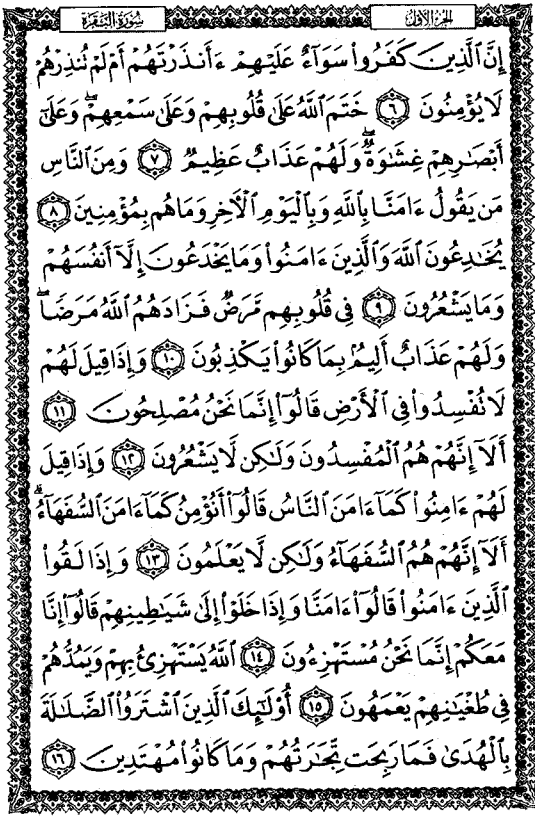 الجزء الأول
سورة البقرة
إِنَّ ٱلَّذِينَ كَفَرُوا۟ سَوَآءٌ عَلَيْهِمْ ءَأَنذَرْتَهُمْ أَمْ لَمْ تُنذِرْهُمْ
لَا يُؤْمِنُونَ ٦ خَتَمَ ٱللَّهُ عَلَىٰ قُلُوبِهِمْ وَعَلَىٰ سَمْعِهِمْ ۖ وَعَلَىٰٓ
أَبْصَـٰرِهِمْ غِشَـٰوَةٌ ۖ وَلَهُمْ عَذَابٌ عَظِيمٌ ٧ وَمِنَ ٱلنَّاسِ
مَن يَقُولُ ءَامَنَّا بِٱللَّهِ وَبِٱلْيَوْمِ ٱلْـَٔاخِرِ وَمَا هُم بِمُؤْمِنِينَ ٨
يُخَـٰدِعُونَ ٱللَّهَ وَٱلَّذِينَ ءَامَنُوا۟ وَمَا يَخْدَعُونَ إِلَّآ أَنفُسَهُمْ
وَمَا يَشْعُرُونَ ٩ فِى قُلُوبِهِم مَّرَضٌ فَزَادَهُمُ ٱللَّهُ مَرَضًا ۖ
وَلَهُمْ عَذَابٌ أَلِيمٌۢ بِمَا كَانُوا۟ يَكْذِبُونَ ١٠ وَإِذَا قِيلَ لَهُمْ
لَا تُفْسِدُوا۟ فِى ٱلْأَرْضِ قَالُوٓا۟ إِنَّمَا نَحْنُ مُصْلِحُونَ ١١
أَلَآ إِنَّهُمْ هُمُ ٱلْمُفْسِدُونَ وَلَـٰكِن لَّا يَشْعُرُونَ ١٢ وَإِذَا قِيلَ
لَهُمْ ءَامِنُوا۟ كَمَآ ءَامَنَ ٱلنَّاسُ قَالُوٓا۟ أَنُؤْمِنُ كَمَآ ءَامَنَ ٱلسُّفَهَآءُ ۗ
أَلَآ إِنَّهُمْ هُمُ ٱلسُّفَهَآءُ وَلَـٰكِن لَّا يَعْلَمُونَ ١٣ وَإِذَا لَقُوا۟
ٱلَّذِينَ ءَامَنُوا۟ قَالُوٓا۟ ءَامَنَّا وَإِذَا خَلَوْا۟ إِلَىٰ شَيَـٰطِينِهِمْ قَالُوٓا۟ إِنَّا
مَعَكُمْ إِنَّمَا نَحْنُ مُسْتَهْزِءُونَ ١٤ ٱللَّهُ يَسْتَهْزِئُ بِهِمْ وَيَمُدُّهُمْ
فِى طُغْيَـٰنِهِمْ يَعْمَهُونَ ١٥ أُو۟لَـٰٓئِكَ ٱلَّذِينَ ٱشْتَرَوُا۟ ٱلضَّلَـٰلَةَ
بِٱلْهُدَىٰ فَمَا رَبِحَت تِّجَـٰرَتُهُمْ وَمَا كَانُوا۟ مُهْتَدِينَ ١٦